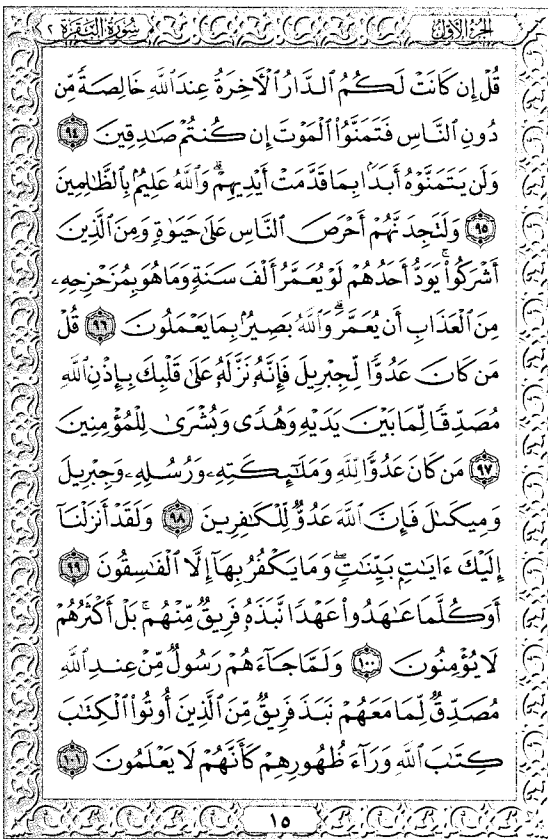 الجزء الأول سورة البقرة ٢
قُلْ إِن كَانَتْ لَكُمُ الدَّارُ الْأَخِرَةُ عِندَ اللَّهِ خَالِصَةً مِّن
دُونِ النَّاسِ فَتَمَنَّوُا الْمَوْتَ إِن كُنتُمْ صَادِقِينَ ٩٤
وَلَن يَتَمَنَّوْهُ أَبَدًا بِمَا قَدَّمَتْ أَيْدِيهِمْ ۗ وَاللَّهُ عَلِيمٌ بِالظَّالِمِينَ
٩٥ وَلَتَجِدَنَّهُمْ أَحْرَصَ النَّاسِ عَلَىٰ حَيَوٰةٍ وَمِنَ الَّذِينَ
أَشْرَكُوا ۚ يَوَدُّ أَحَدُهُمْ لَوْ يُعَمَّرُ أَلْفَ سَنَةٍ وَمَا هُوَ بِمُزَحْزِحِهِ
مِنَ الْعَذَابِ أَن يُعَمَّرَ ۗ وَاللَّهُ بَصِيرٌ بِمَا يَعْمَلُونَ ٩٦ قُلْ
مَن كَانَ عَدُوًّا لِّجِبْرِيلَ فَإِنَّهُ نَزَّلَهُ عَلَىٰ قَلْبِكَ بِإِذْنِ اللَّهِ
مُصَدِّقًا لِّمَا بَيْنَ يَدَيْهِ وَهُدًى وَبُشْرَىٰ لِلْمُؤْمِنِينَ
٩٧ مَن كَانَ عَدُوًّا لِّلَّهِ وَمَلَٰٓئِكَتِهِ وَرُسُلِهِ وَجِبْرِيلَ
وَمِيكَىٰلَ فَإِنَّ اللَّهَ عَدُوٌّ لِّلْكَافِرِينَ ٩٨ وَلَقَدْ أَنزَلْنَآ
إِلَيْكَ ءَايَاتٍ بَيِّنَاتٍ ۖ وَمَا يَكْفُرُ بِهَآ إِلَّا الْفَاسِقُونَ ٩٩
أَوَكُلَّمَا عَٰهَدُوا عَهْدًا نَّبَذَهُ فَرِيقٌ مِّنْهُم ۚ بَلْ أَكْثَرُهُمْ
لَا يُؤْمِنُونَ ١٠٠ وَلَمَّا جَآءَهُمْ رَسُولٌ مِّنْ عِندِ اللَّهِ
مُصَدِّقٌ لِّمَا مَعَهُمْ نَبَذَ فَرِيقٌ مِّنَ الَّذِينَ أُوتُوا الْكِتَٰبَ
كِتَٰبَ اللَّهِ وَرَآءَ ظُهُورِهِمْ كَأَنَّهُمْ لَا يَعْلَمُونَ ١٠١
١٥